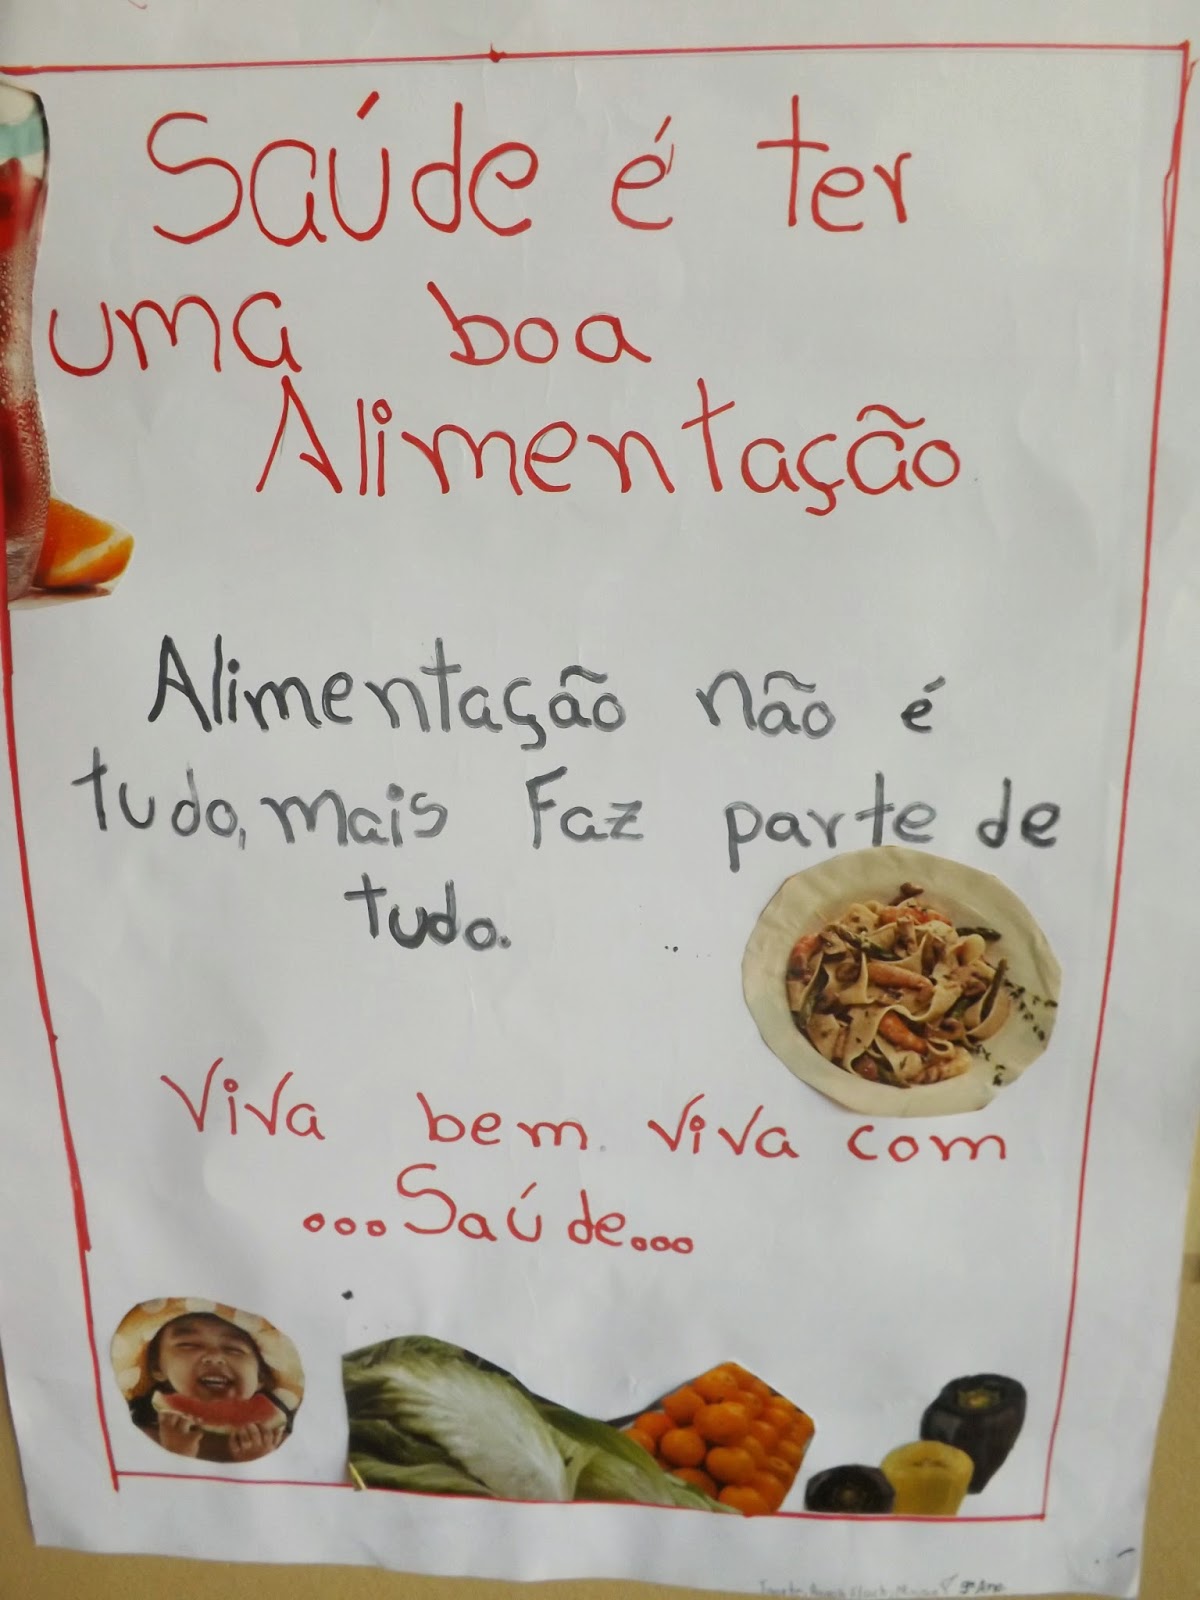 Saúde é ter
uma boa
Alimentação
Alimentação não é
tudo, mais Faz parte de
tudo.
Viva bem. Viva com
...Saúde...
9º Ano